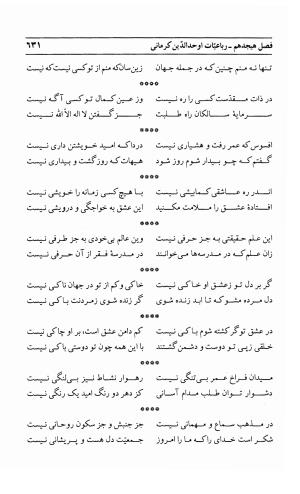 فصل هیجدهم ـ رباعیّات اوحدالدّین کرمانی ۶۳۱
تنها نه منم چنین که در جمله جهان زین‌سان‌که منم از توکسی نیست‌که نیست
****
در ذات مقدّست کسی را ره نیست وز عین کمال تو کسی آگه نیست
سرمایهٔ سالکان راه طلبت جز گفتن لا اله الّا الله نیست
****
افسوس که عمر رفت و هشیاری نیست دردا که امید خویشتن داری نیست
گفتم که چو بیدار شوم روز شود هیهات که روز گشت و بیداری نیست
****
اندر ره عاشقی کمابیشی نیست با هیچ کسی زمانه را خویشی نیست
افتادهٔ عشق را ملامت مکنید این عشق به خواجگی و درویشی نیست
****
این علم حقیقتی به جز حرفی نیست وین عالم بی‌خودی به جز طرفی نیست
زان علم‌که در مدرسه‌ها می‌خوانند در مدرسهٔ فقر از آن حرفی نیست
****
گر بر دل تو ز عشق او خاکی نیست خاکی و کم از تو در جهان ناکی نیست
دل مرده مشو که تا ابد زنده شوی گر زنده شوی ز مردنت باکی نیست
****
در عشق تو گر کشته شوم باکی نیست کم دامن عشق است، بر او چاکی نیست
خلقی ز پی تو دوست و دشمن گشتند با این همه چون تو دوستی باکی نیست
****
میدان فراخ عمر بی‌تنگی نیست رهوار نشاط نیز بی‌لنگی نیست
دشوار توان طلب مدام آسانی کز دهر دو رنگ امید یک رنگی نیست
****
در مذهب سماع و مهمانی نیست جز جنبش و جز سکون روحانی نیست
شکر است خدای را که ما را امروز جمعیّت دل هست و پریشانی نیست